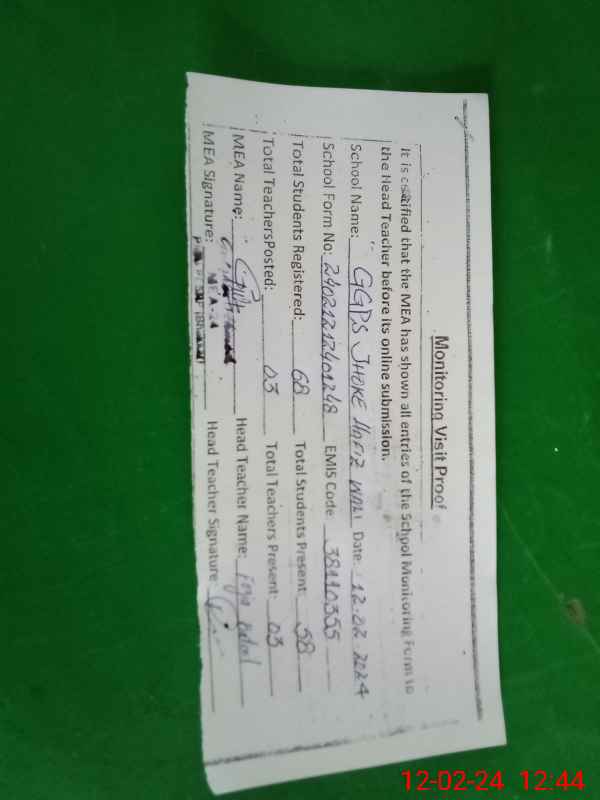 Monitoring Visit Proof
It is certified that the MEA has shown all entries of the School Monitoring Form to
the Head Teacher before its online submission.
School Name: GGPS JHOKE HAFIZ WALI Date: 12.02.2024
School Form No: 24021212401248 EMIS Code 38110355
Total Students Registered: 68 Total Students Present: 58
Total TeachersPosted: 03 Total Teachers Present: 03
MEA Name: Head Teacher Name:
MEA Signature: MEA-24 Head Teacher Signature:
12-02-24 12:44